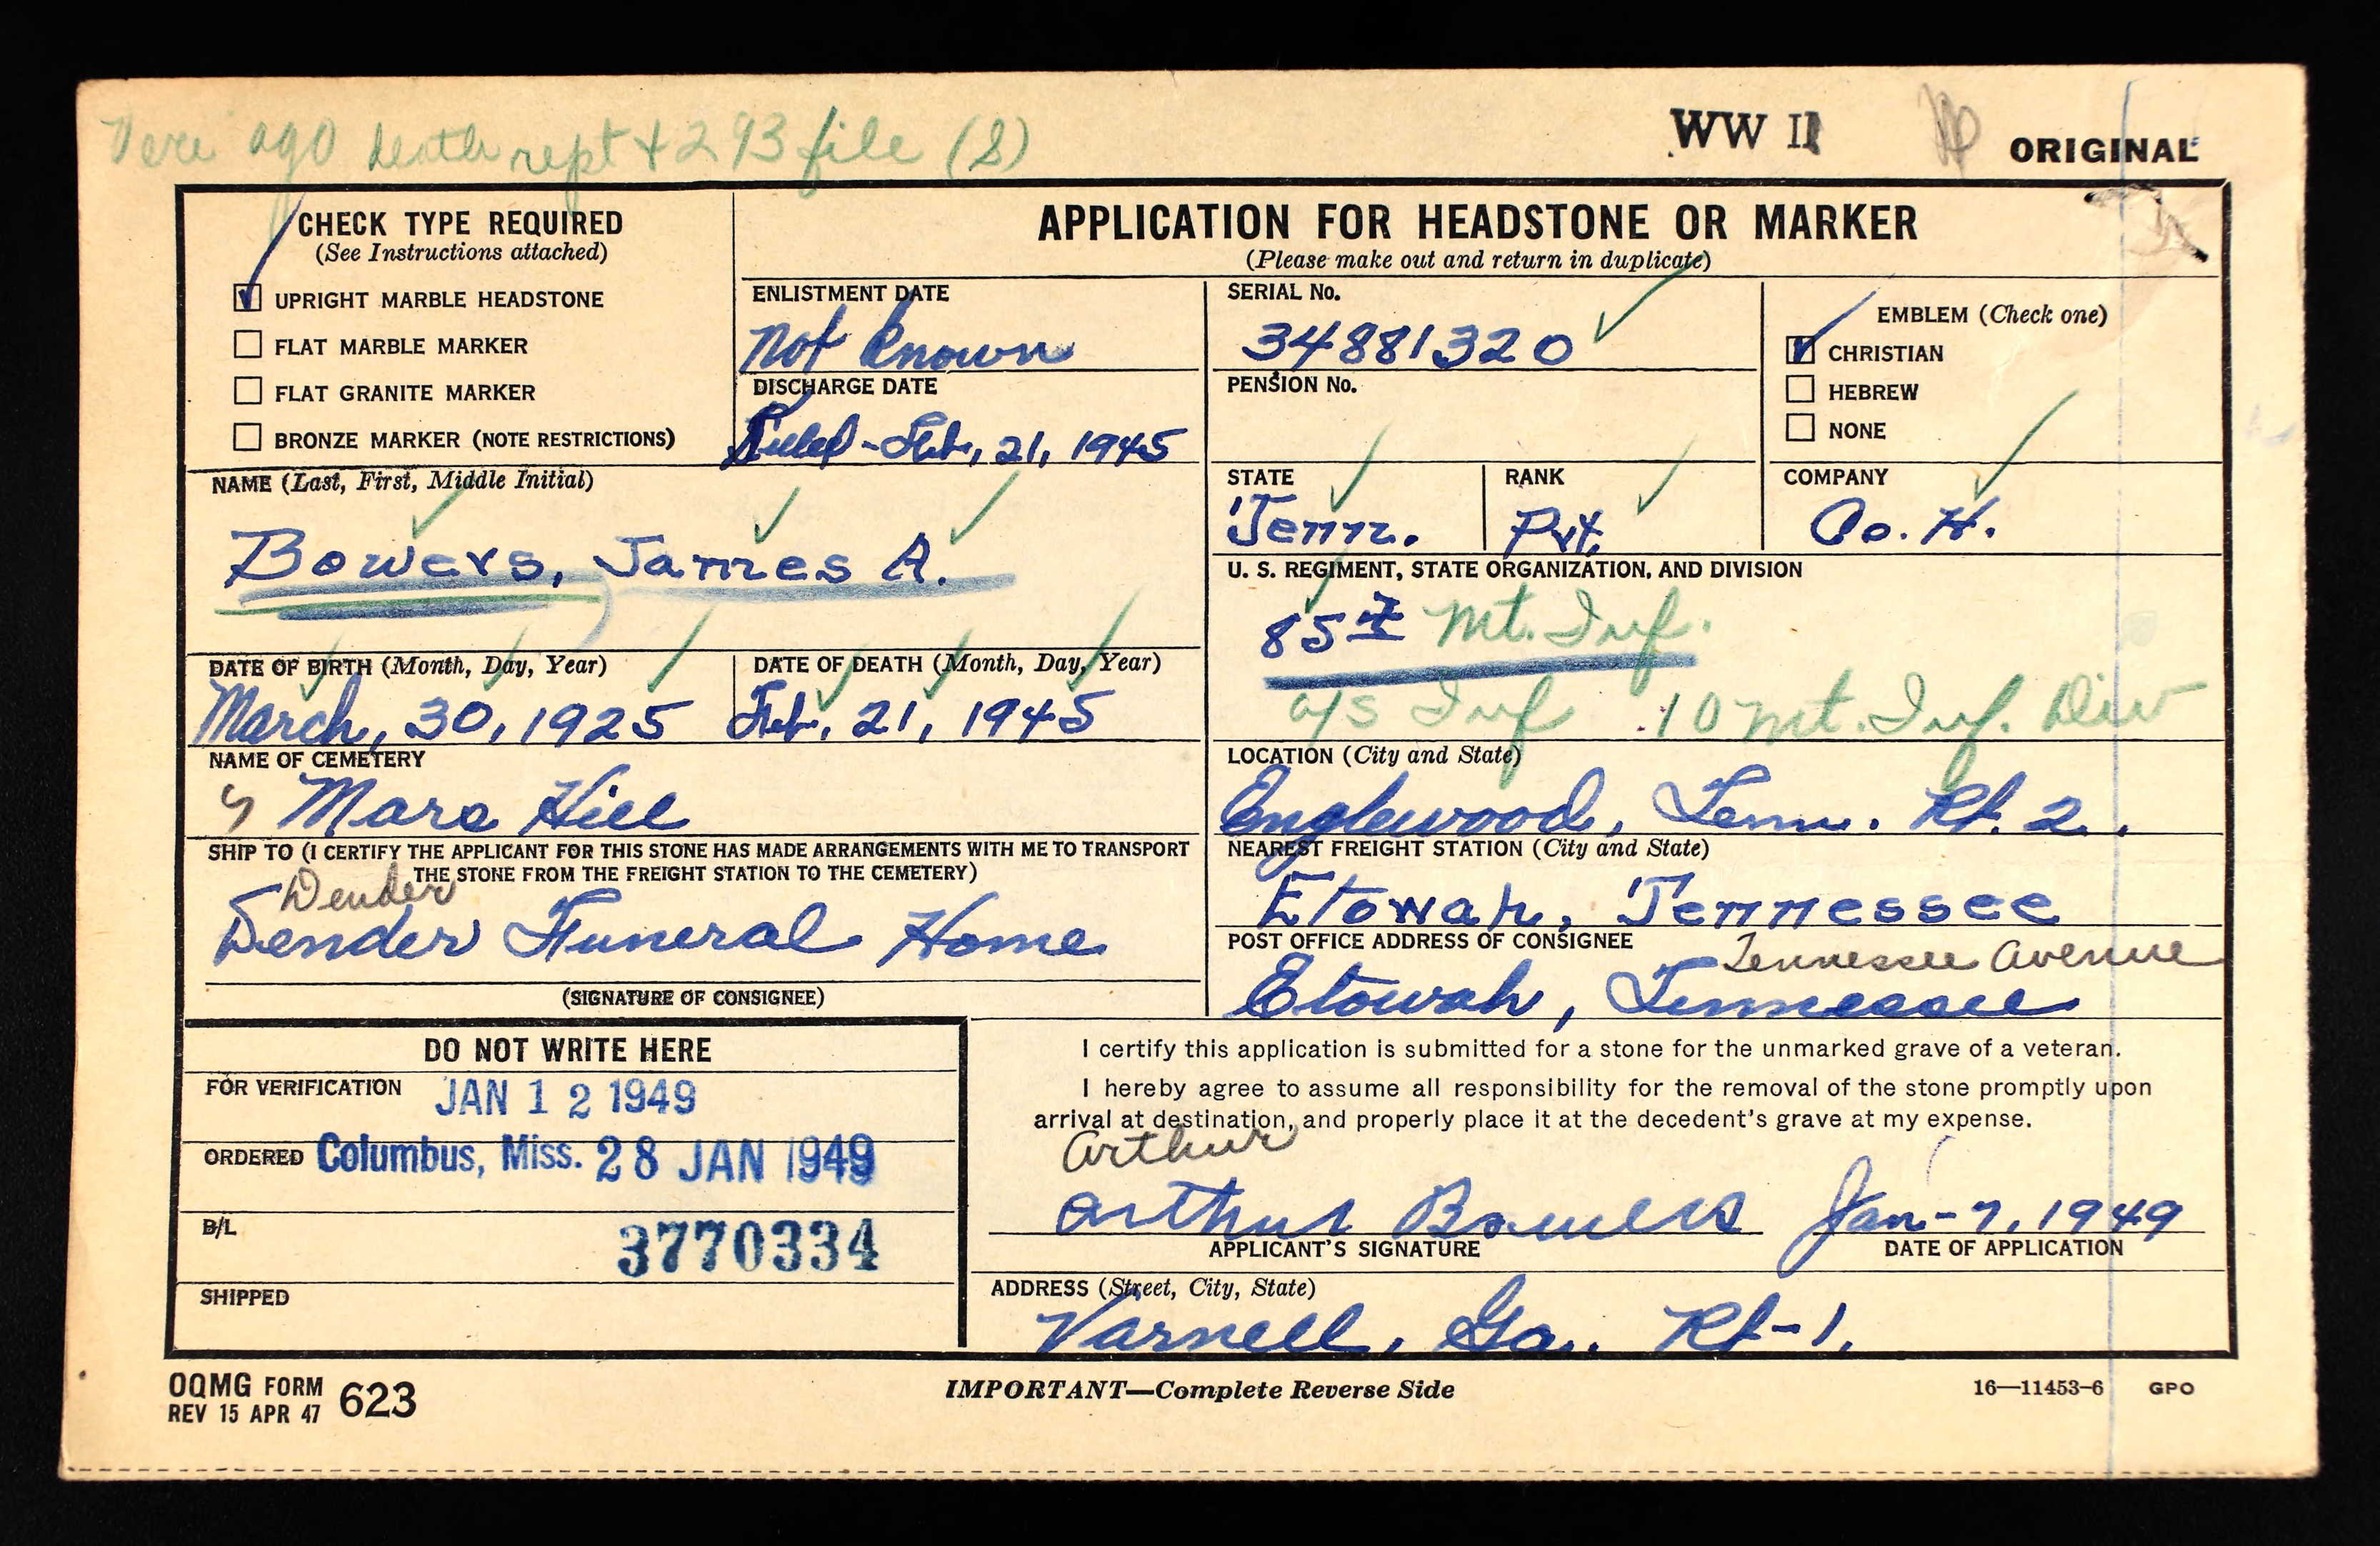 Veri ago death rept + 293 file (S)
WW II
ORIGINAL
CHECK TYPE REQUIRED
(See Instructions attached)
UPRIGHT MARBLE HEADSTONE
FLAT MARBLE MARKER
FLAT GRANITE MARKER
BRONZE MARKER (NOTE RESTRICTIONS)
APPLICATION FOR HEADSTONE OR MARKER
(Please make out and return in duplicate)
ENLISTMENT DATE
Not known
DISCHARGE DATE
Killed - Feb, 21, 1945
SERIAL No.
34881320
PENSION No.
EMBLEM (Check one)
CHRISTIAN
HEBREW
NONE
NAME (Last, First, Middle Initial)
Bowers, James A.
STATE
Tenn.
RANK
Pvt.
COMPANY
Co. H.
U. S. REGIMENT, STATE ORGANIZATION, AND DIVISION
85th Mt. Inf.
a/s Inf 10 Mt. Inf. Div
DATE OF BIRTH (Month, Day, Year)
March, 30, 1925
DATE OF DEATH (Month, Day, Year)
Feb. 21, 1945
NAME OF CEMETERY
Mars Hill
LOCATION (City and State)
Englewood, Tenn. Rt. 2.
SHIP TO (I CERTIFY THE APPLICANT FOR THIS STONE HAS MADE ARRANGEMENTS WITH ME TO TRANSPORT
THE STONE FROM THE FREIGHT STATION TO THE CEMETERY)
Dender
Dender Funeral Home
(SIGNATURE OF CONSIGNEE)
NEAREST FREIGHT STATION (City and State)
Etowah, Tennessee
POST OFFICE ADDRESS OF CONSIGNEE
Tennessee Avenue
Etowah, Tennessee
DO NOT WRITE HERE
FOR VERIFICATION JAN 12 1949
ORDERED Columbus, Miss. 28 JAN 1949
B/L 3770334
SHIPPED
I certify this application is submitted for a stone for the unmarked grave of a veteran.
I hereby agree to assume all responsibility for the removal of the stone promptly upon
arrival at destination, and properly place it at the decedent's grave at my expense.
Arthur
Arthur Bowers Jan-7, 1949
APPLICANT'S SIGNATURE DATE OF APPLICATION
ADDRESS (Street, City, State)
Varnell, Ga. Rt-1.
OQMG FORM 623
REV 15 APR 47
IMPORTANT—Complete Reverse Side
16—11453-6 GPO